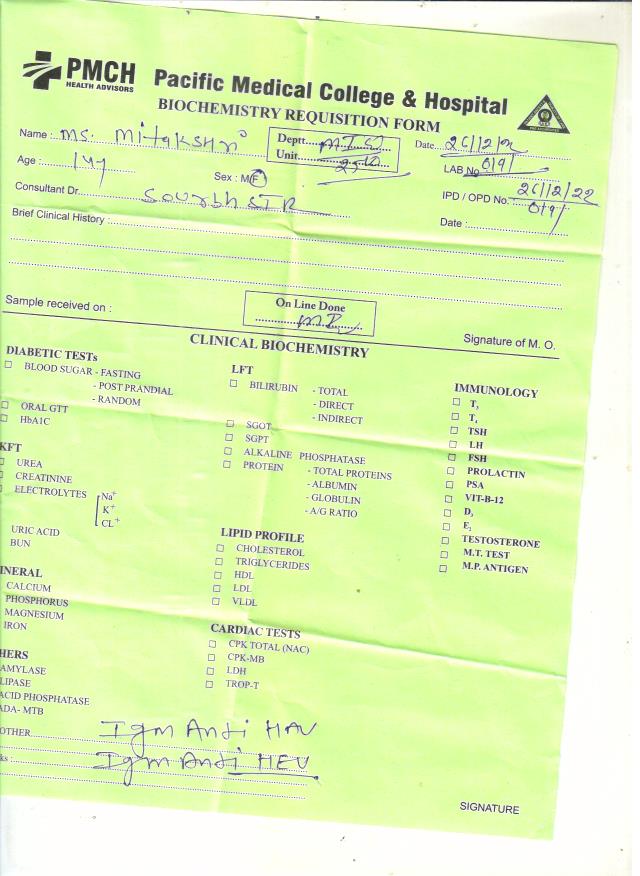 PMCH
HEALTH ADVISORS
Pacific Medical College & Hospital
BIOCHEMISTRY REQUISITION FORM
Name : Ms. Mitakshri Deptt. Date 26/12/22
Unit
Age : 14y Sex : M/F LAB No. 0191
Consultant Dr. Sourbh IPD / OPD No. 26/12/22
0191
Brief Clinical History : Date :
Sample received on : On Line Done Signature of M. O.
CLINICAL BIOCHEMISTRY
DIABETIC TESTs
BLOOD SUGAR - FASTING
- POST PRANDIAL
- RANDOM
ORAL GTT
HbA1C
KFT
UREA
CREATININE
ELECTROLYTES Na+
K+
CL+
URIC ACID
BUN
INERAL
CALCIUM
PHOSPHORUS
MAGNESIUM
IRON
HERS
AMYLASE
LIPASE
ACID PHOSPHATASE
ADA- MTB
LFT
BILIRUBIN - TOTAL
- DIRECT
- INDIRECT
SGOT
SGPT
ALKALINE PHOSPHATASE
PROTEIN - TOTAL PROTEINS
- ALBUMIN
- GLOBULIN
- A/G RATIO
LIPID PROFILE
CHOLESTEROL
TRIGLYCERIDES
HDL
LDL
VLDL
CARDIAC TESTS
CPK TOTAL (NAC)
CPK-MB
LDH
TROP-T
IMMUNOLOGY
T3
T4
TSH
LH
FSH
PROLACTIN
PSA
VIT-B-12
D3
E2
TESTOSTERONE
M.T. TEST
M.P. ANTIGEN
OTHER Igm Anti HAV
ks : Igm Anti HEV
SIGNATURE